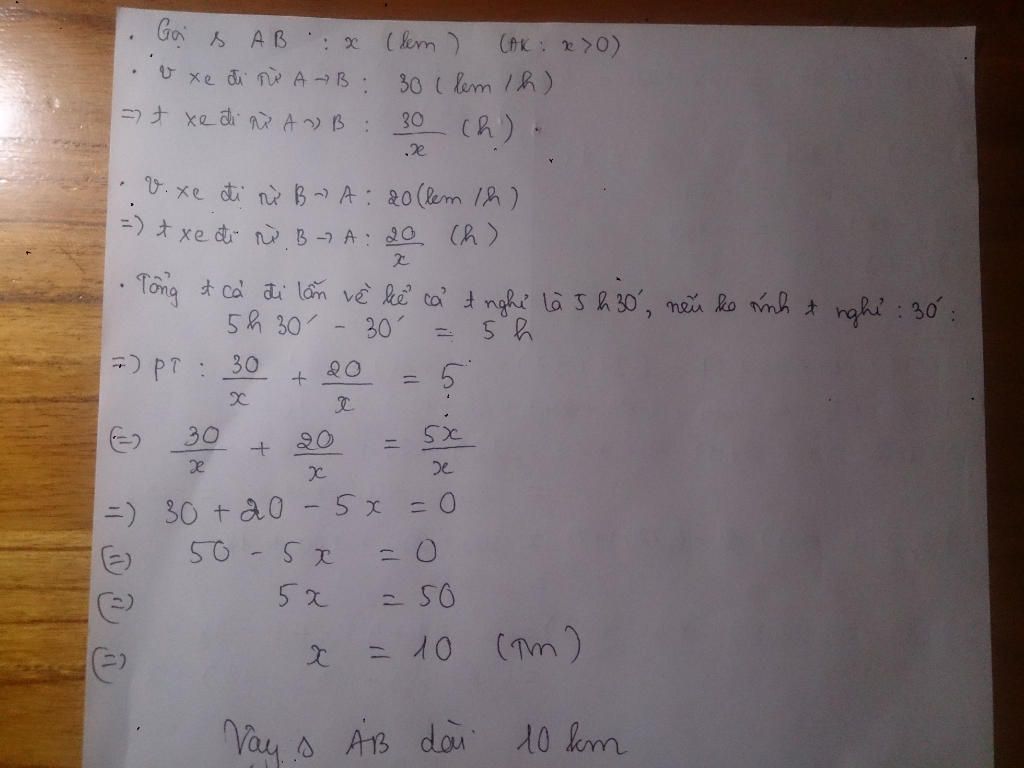 . Gọi s AB : x (km) (ĐK : x > 0)
. v xe đi từ A → B : 30 (km/h)
=> t xe đi từ A → B : 30/x (h)
. v xe đi từ B → A : 20 (km/h)
=> t xe đi từ B → A : 20/x (h)
. Tổng t cả đi lẫn về kể cả t nghỉ là 5h30', nếu ko tính t nghỉ : 30' :
5h30' - 30' = 5h
=> PT : 30/x + 20/x = 5
(=) 30/x + 20/x = 5x/x
=) 30 + 20 - 5x = 0
(=) 50 - 5x = 0
(=) 5x = 50
(=) x = 10 (Tm)
Vậy s AB dài 10 km